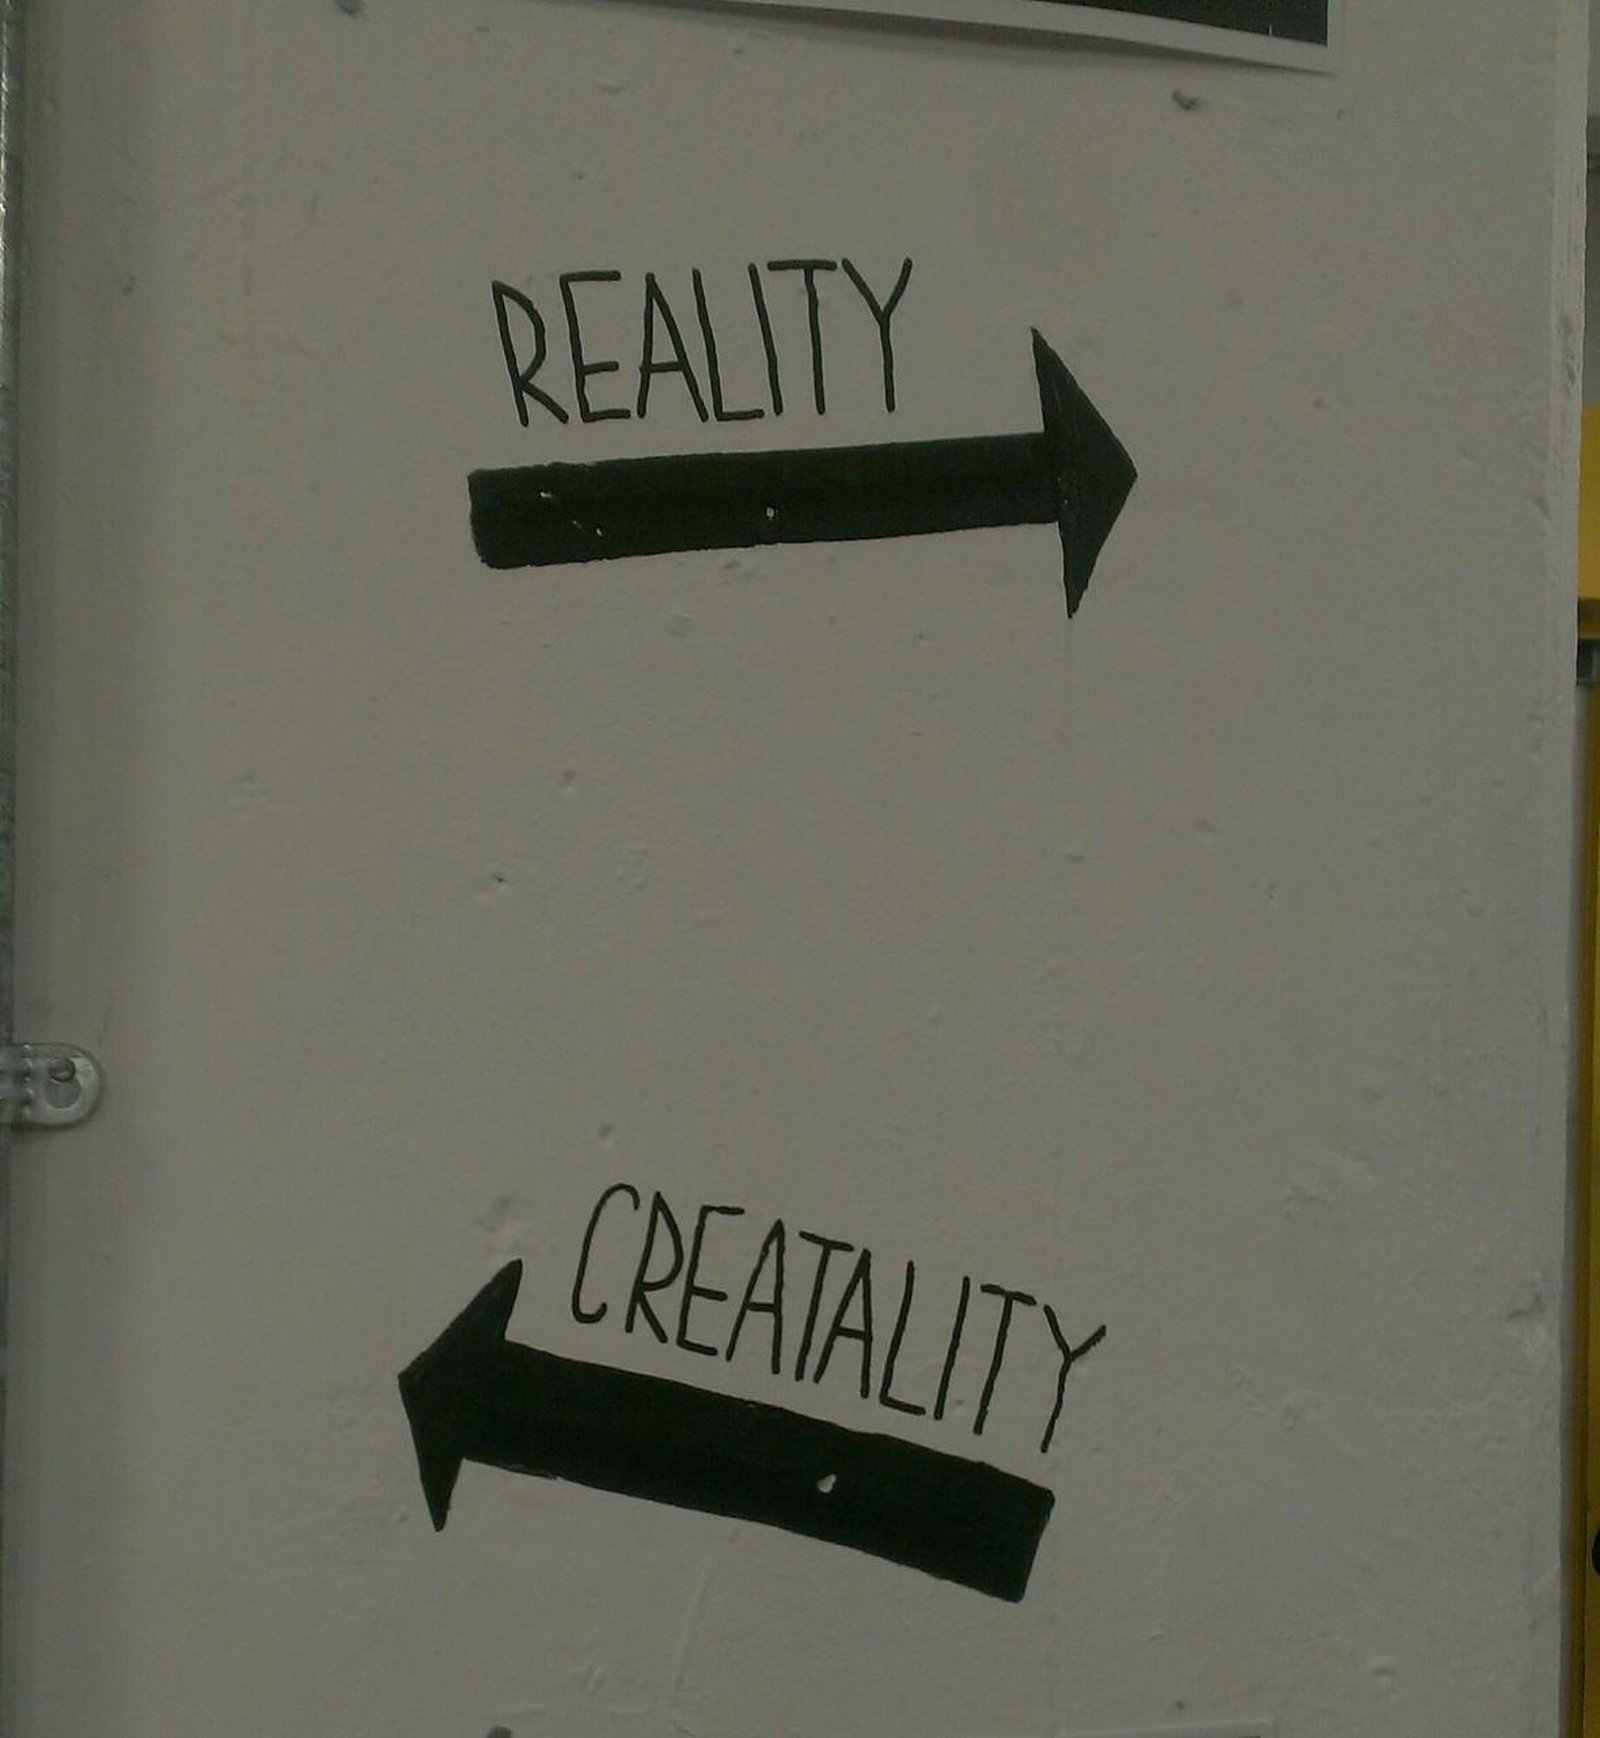 REALITY
CREATALITY